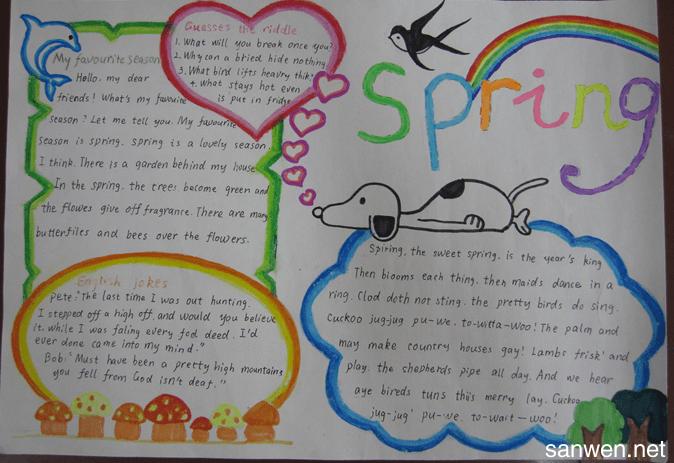 My favourite season
Hello, my dear
friends! What's my favouire
season? Let me tell you. My favourite
season is spring. Spring is a lovely season.
I think. There is a garden behind my house
In the spring. the trees become green and
the flowes give off fragrance. There are many
butterfiles and bees over the flowers.
Guesses the riddle
1. What will you break once you?
2. Why can a bried hide nothing
3. What bird lifts heavry thik
4. What stays hot even
is put in fridge
Spring
English jokes
Pete: "The last time I was out hunting.
I stepped off a high off. and would you believe
it. while I was faling every fod deed. I'd
ever done came into my mind."
Bob: "Must have been a pretty high mountains
you fell from God isn't deaf."
Spiring. the sweet spring. is the year's king
Then biooms each thing. then maids dance in a
ring. Clod doth not sting. the pretty birds do sing.
Cuckoo jug-jug pu-we. to-witta-Woo! The palm and
may make country houses gay! Lambs frisk' and
play. the shepherds pipe all day. And we hear
aye bireds tuns this merry lay. Cuckoo
jug-jug' pu-we. to-wait-woo!
sanwen.net